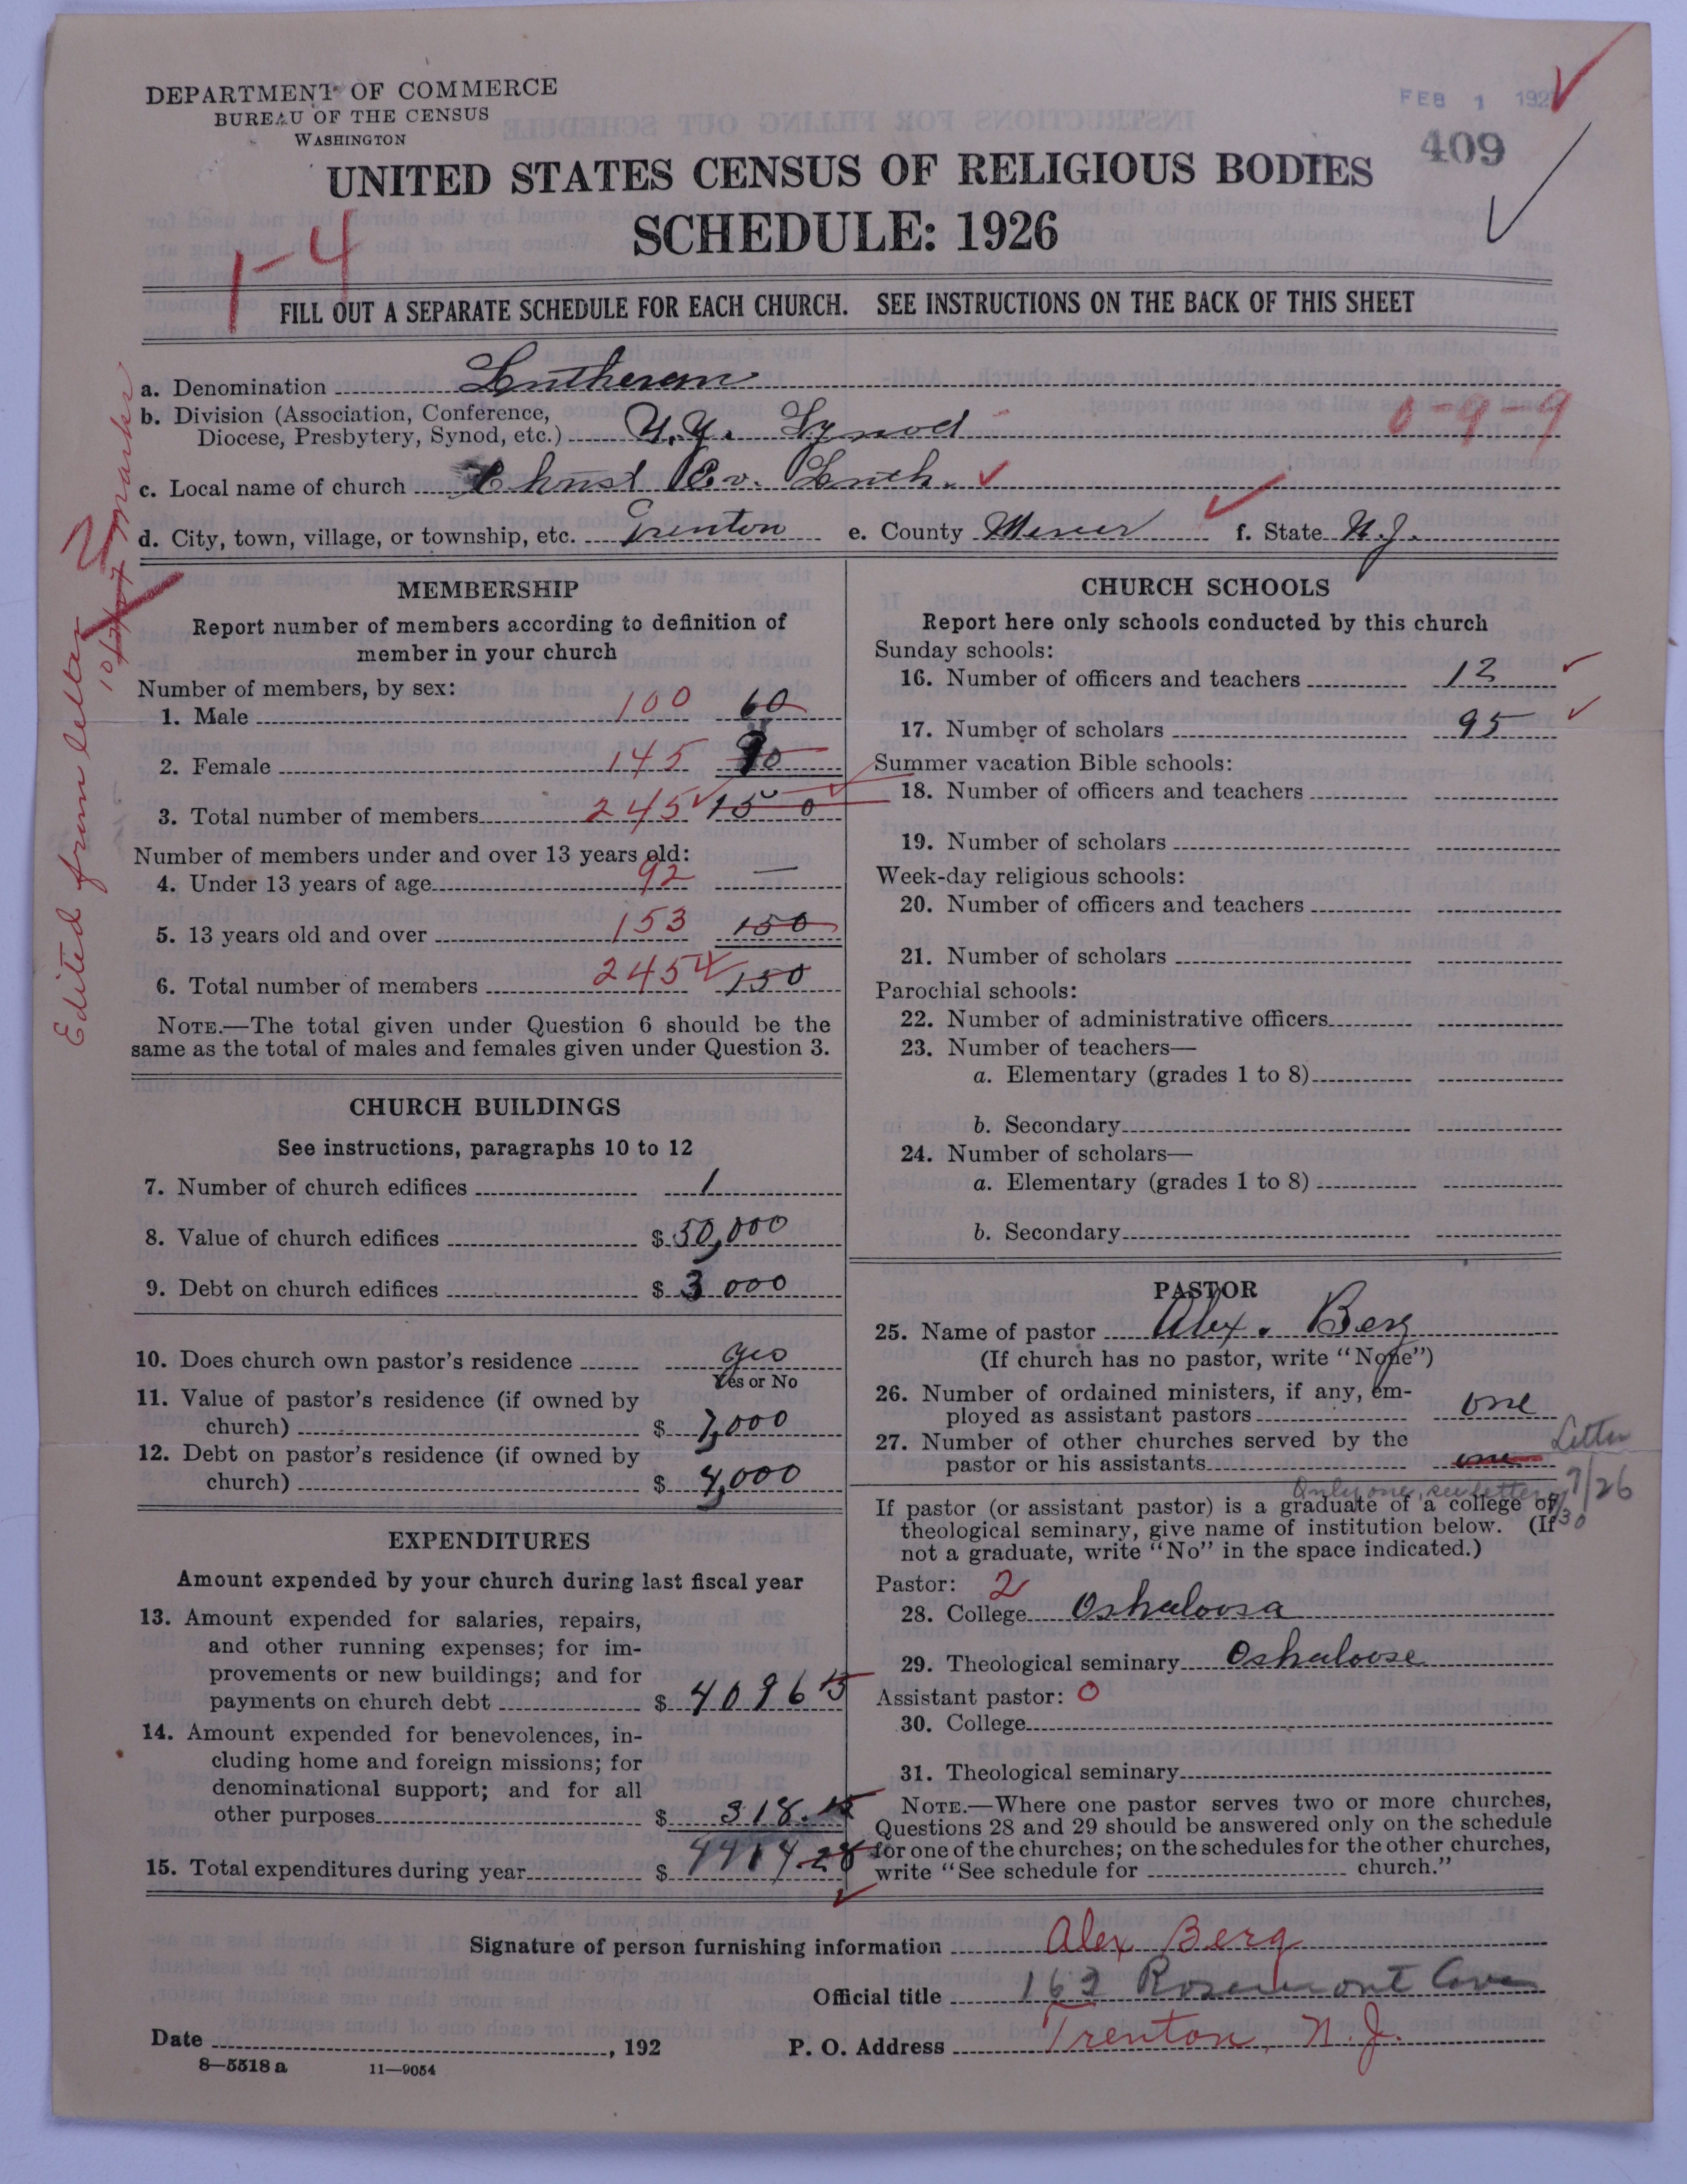 DEPARTMENT OF COMMERCE
BUREAU OF THE CENSUS
WASHINGTON
FEB 1 192
409
UNITED STATES CENSUS OF RELIGIOUS BODIES
SCHEDULE: 1926
1-4
FILL OUT A SEPARATE SCHEDULE FOR EACH CHURCH. SEE INSTRUCTIONS ON THE BACK OF THIS SHEET
a. Denomination Lutheran
b. Division (Association, Conference,
Diocese, Presbytery, Synod, etc.) N.Y. Synod 0-9-9
c. Local name of church Christ Ev. Luth.
d. City, town, village, or township, etc. Trenton e. County Mercer f. State N.J.
Edited from letter
MEMBERSHIP
Report number of members according to definition of
member in your church
Number of members, by sex:
1. Male 100 60
2. Female 145 90
3. Total number of members 245 150
Number of members under and over 13 years old:
4. Under 13 years of age 92 —
5. 13 years old and over 153 150
6. Total number of members 245 150
NOTE.—The total given under Question 6 should be the
same as the total of males and females given under Question 3.
CHURCH BUILDINGS
See instructions, paragraphs 10 to 12
7. Number of church edifices 1
8. Value of church edifices $ 50,000
9. Debt on church edifices $ 3 000
10. Does church own pastor's residence yes
Yes or No
11. Value of pastor's residence (if owned by
church) $ 7,000
12. Debt on pastor's residence (if owned by
church) $ 4,000
EXPENDITURES
Amount expended by your church during last fiscal year
13. Amount expended for salaries, repairs,
and other running expenses; for im-
provements or new buildings; and for
payments on church debt $ 4096
14. Amount expended for benevolences, in-
cluding home and foreign missions; for
denominational support; and for all
other purposes $ 318
15. Total expenditures during year $ 4414.28
CHURCH SCHOOLS
Report here only schools conducted by this church
Sunday schools:
16. Number of officers and teachers 12
17. Number of scholars 95
Summer vacation Bible schools:
18. Number of officers and teachers
19. Number of scholars
Week-day religious schools:
20. Number of officers and teachers
21. Number of scholars
Parochial schools:
22. Number of administrative officers
23. Number of teachers—
a. Elementary (grades 1 to 8)
b. Secondary
24. Number of scholars—
a. Elementary (grades 1 to 8)
b. Secondary
PASTOR
25. Name of pastor Alex. Berg
(If church has no pastor, write "None")
26. Number of ordained ministers, if any, em-
ployed as assistant pastors one
27. Number of other churches served by the
pastor or his assistants one
Letter
Only one, see letter
If pastor (or assistant pastor) is a graduate of a college or
theological seminary, give name of institution below. (If
not a graduate, write "No" in the space indicated.)
Pastor: 2
28. College Oskaloosa
29. Theological seminary Oskaloose
Assistant pastor: 0
30. College
31. Theological seminary
NOTE.—Where one pastor serves two or more churches,
Questions 28 and 29 should be answered only on the schedule
for one of the churches; on the schedules for the other churches,
write "See schedule for church."
Signature of person furnishing information Alex Berg
Official title 162 Rosemont Ave
Date , 192 P. O. Address Trenton, N.J.
8—5518 a 11—9054